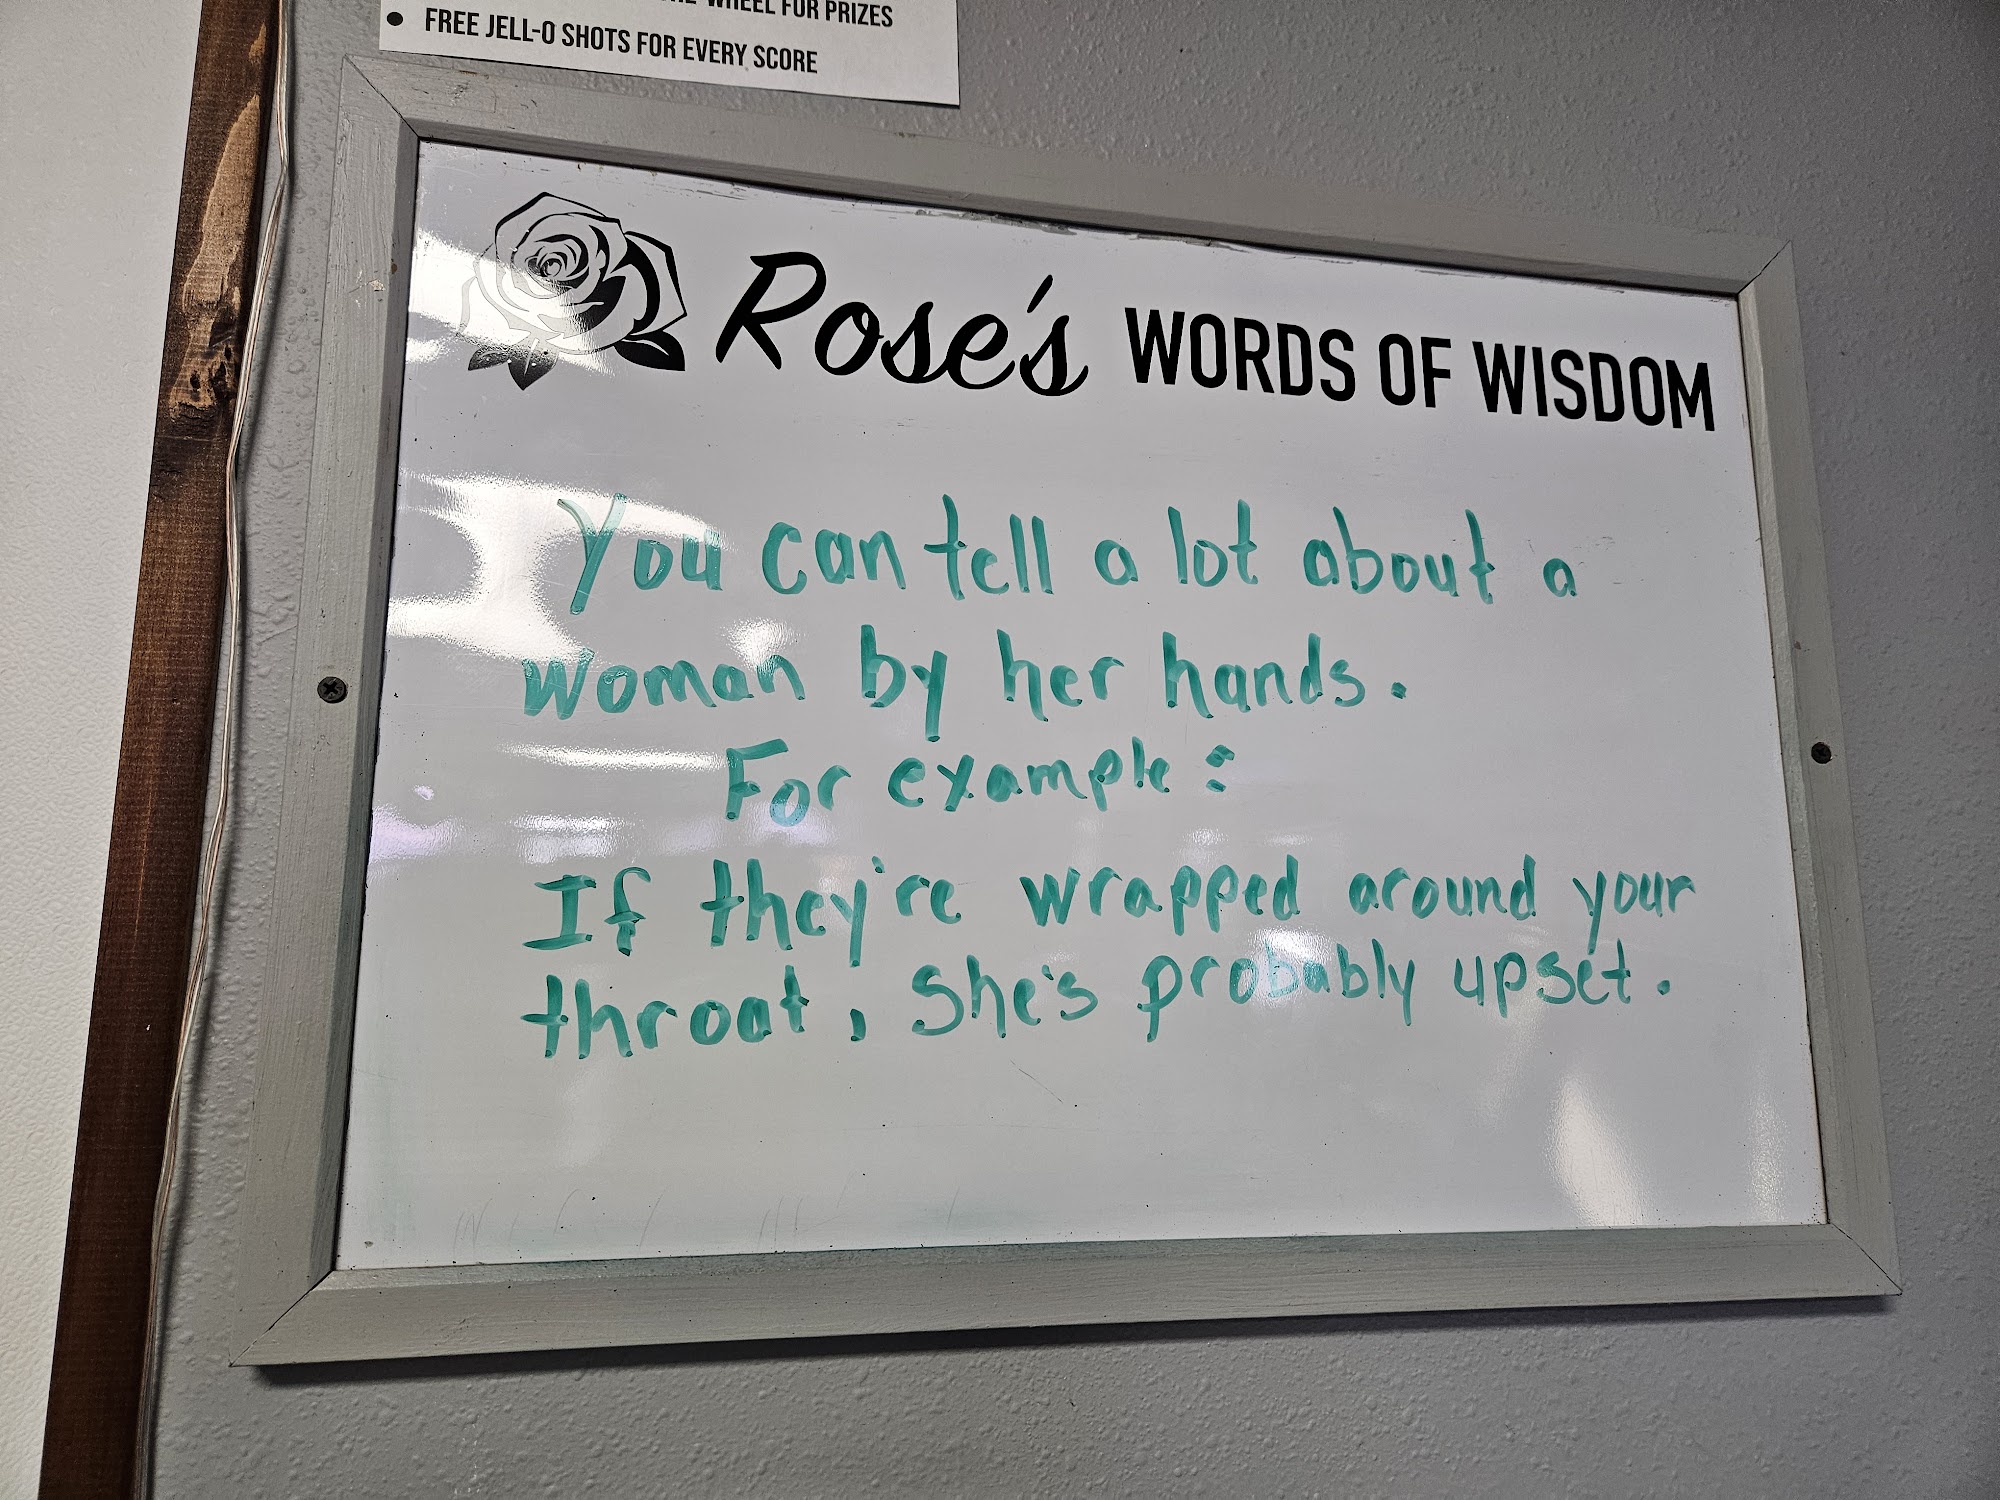 WHEEL FOR PRIZES
• FREE JELL-O SHOTS FOR EVERY SCORE
Rose's WORDS OF WISDOM
You can tell a lot about a
woman by her hands.
For example:
If they're wrapped around your
throat, she's probably upset.